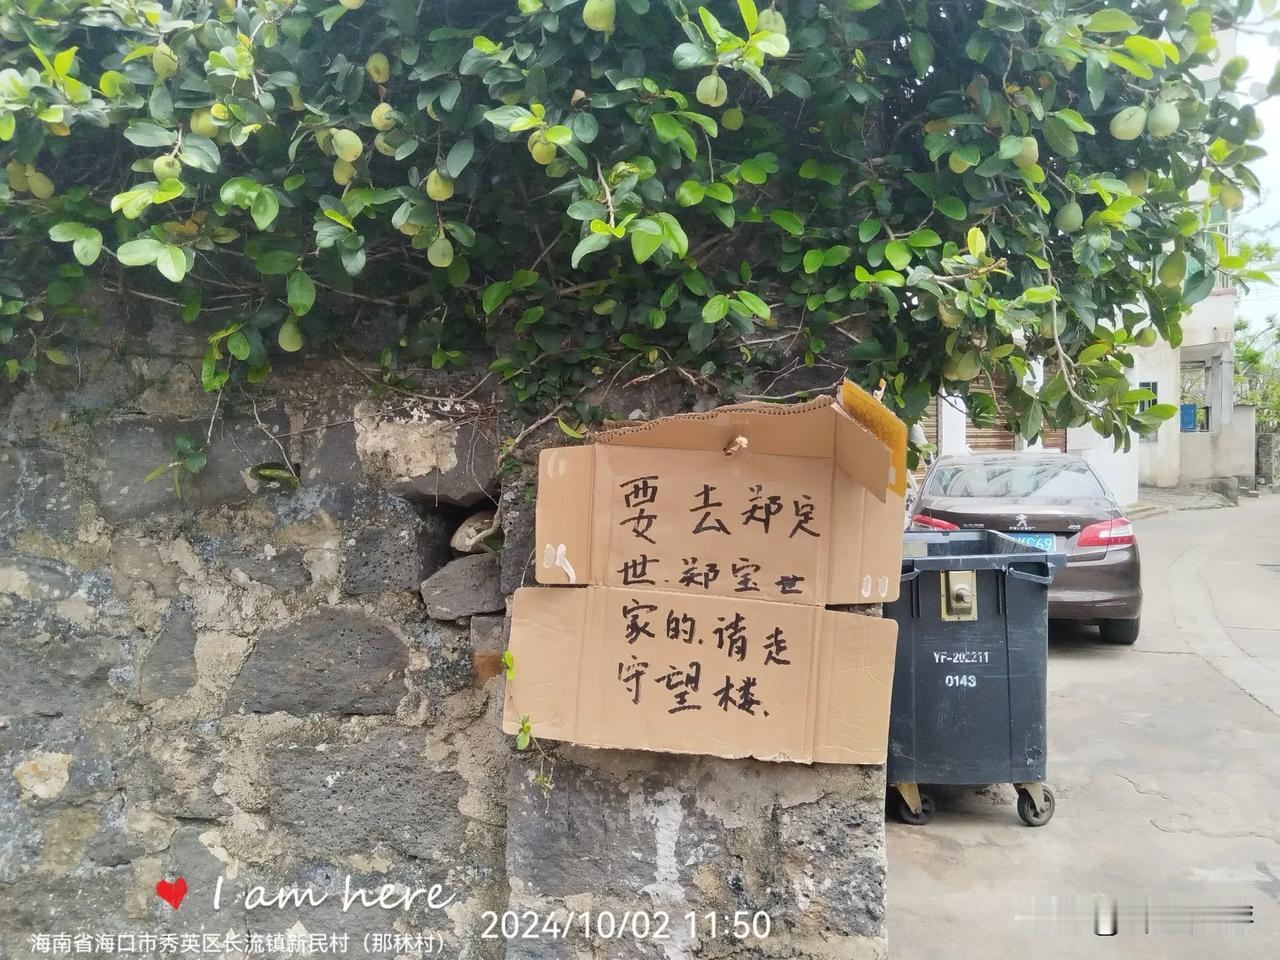 要去郑定
世.郑宝世
家的.请走
守望楼.
PEUGEOT
408
YF-202211
0143
I am here
2024/10/02 11:50
海南省海口市秀英区长流镇新民村（那秫村）